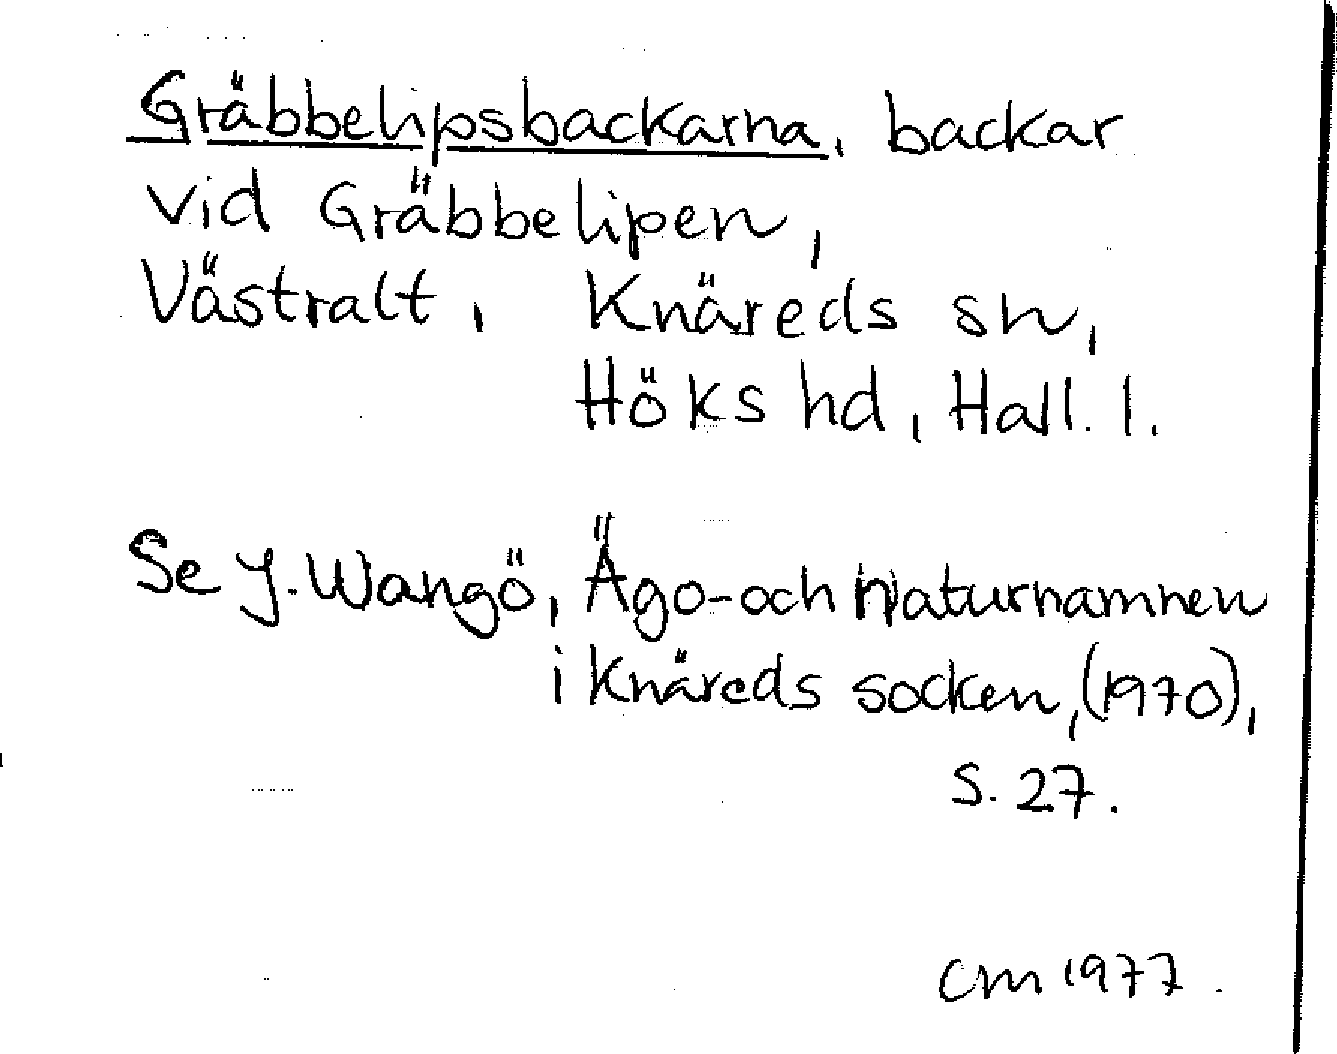 Gräbbelipsbackarna, backar
vid Gräbbelipen,
Västralt, Knäreds sn,
Höks hd, Hall. l.
Se J. Wangö, Ägo- och naturnamnen
i Knäreds socken, (1970),
s. 27.
CM 1977.